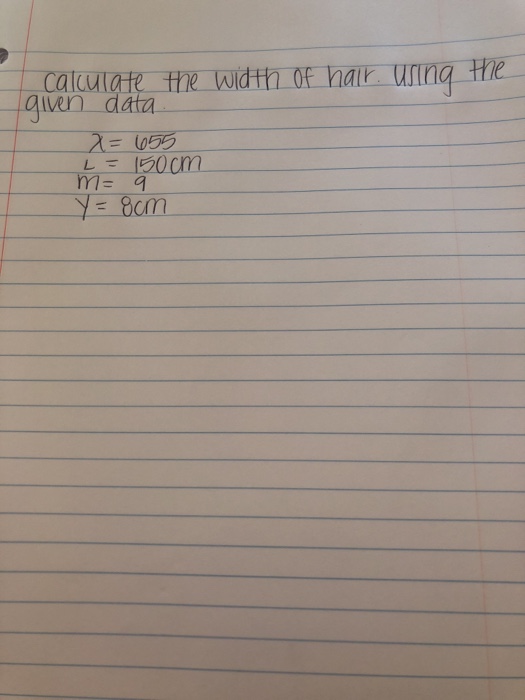 calculate the width of hair using the
given data.
λ = 655
L = 150cm
m = 9
y = 8cm